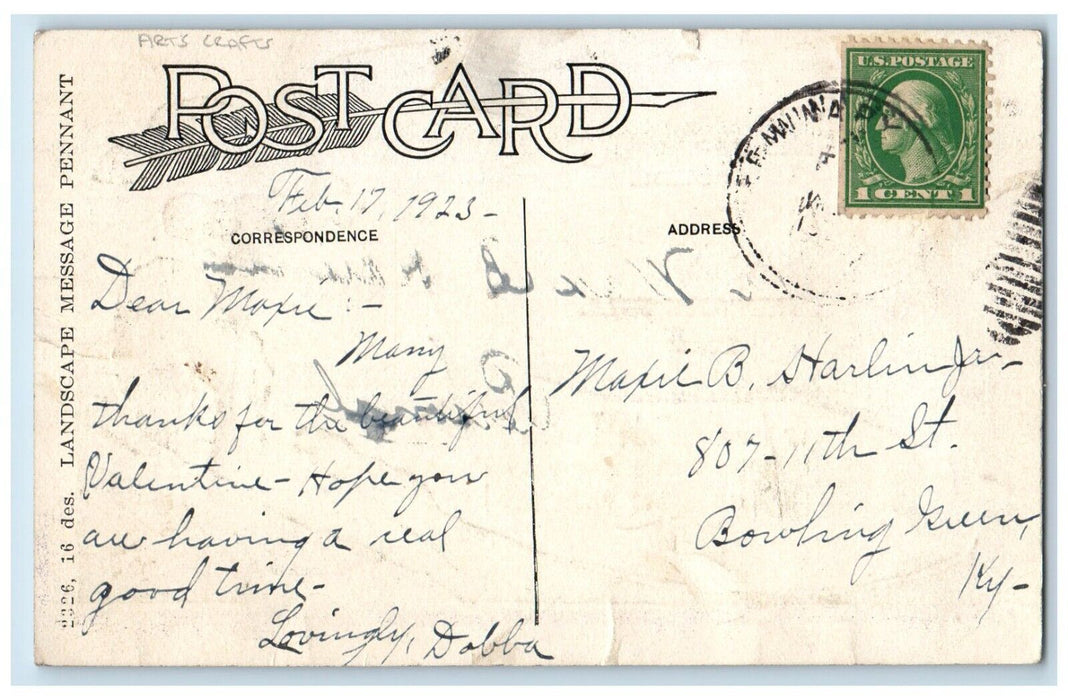 ARTS CRAFTS
POST CARD
U.S. POSTAGE
1 CENT 1
Feb. 17, 1923-
CORRESPONDENCE
ADDRESS
Dear Maxie:-
Many
thanks for the beautiful
Valentine- Hope you
are having a real
good time-
Lovingly, Dobba
Maxie B. Harlin Jr-
807-11th St.
Bowling Green,
Ky-
2326, 16 des. LANDSCAPE MESSAGE PENNANT